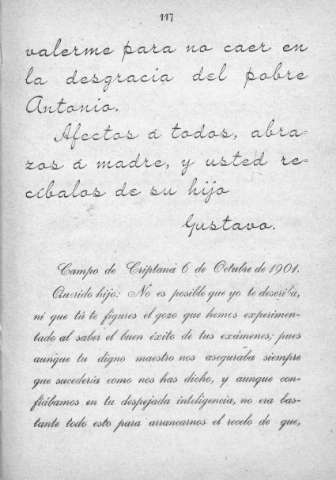 117
valerme para no caer en
la desgracia del pobre
Antonio.
Afectos á todos, abra-
zos á madre, y usted re-
cíbalos de su hijo
Gustavo.
Campo de Criptana 6 de Octubre de 1901.
Querido hijo: No es posible que yo te describa,
ni que tú te figures el gozo que hemos experimen-
tado al saber el buen éxito de tus exámenes; pues
aunque tu digno maestro nos aseguraba siempre
que sucedería como nos has dicho, y aunque con-
fiábamos en tu despejada inteligencia, no era bas-
tante todo esto para arrancarnos el recelo de que,